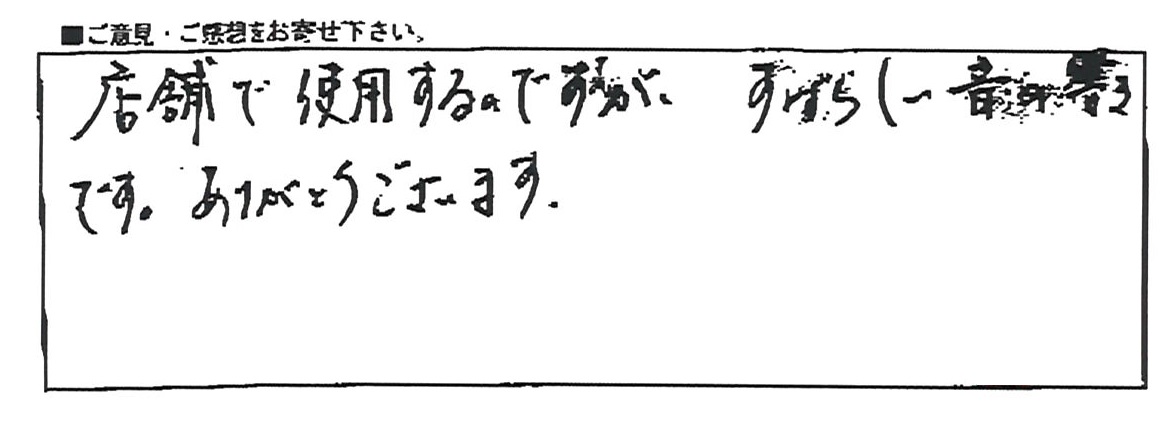 ■ご意見・ご感想をお寄せ下さい。
店舗で使用するのですが、すばらしい音響
です。ありがとうございます。